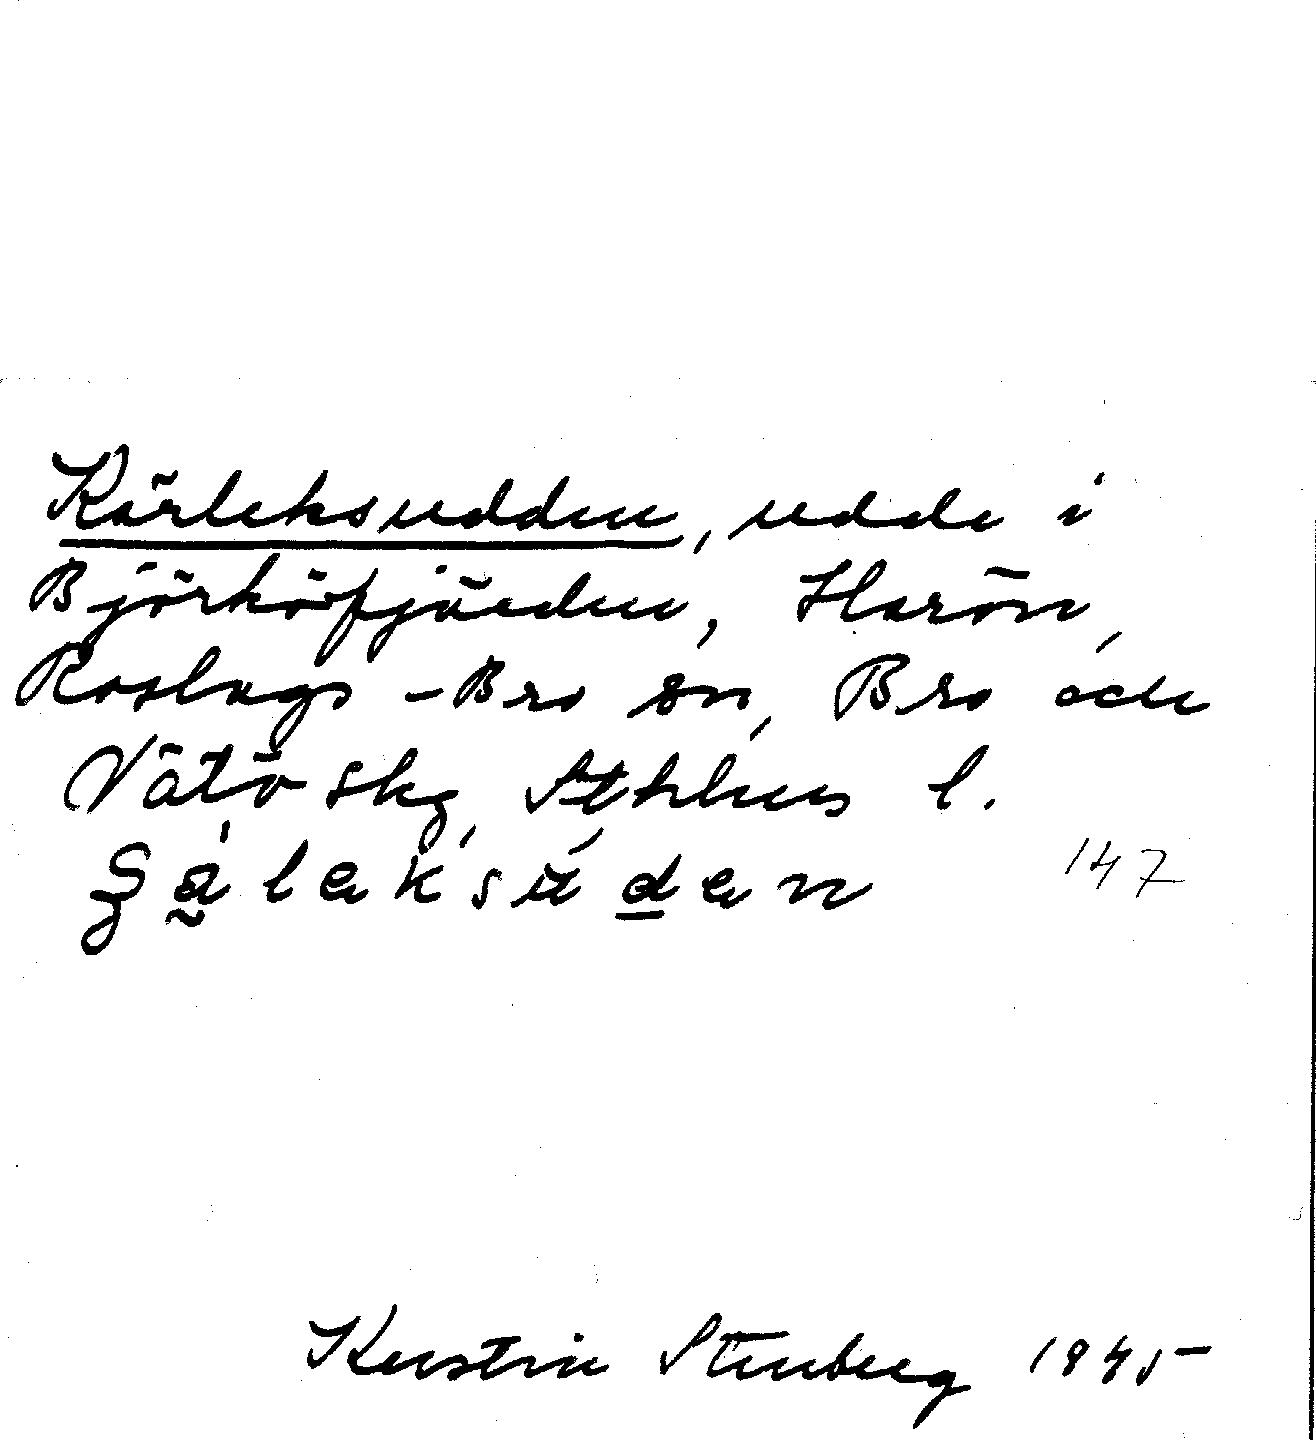 Kärleksudden, udde i
Björköfjärden, Harön,
Roslags-Bro sn, Bro och
Vätö skg, Sthlms l.
147
Kerstin Stenberg 1945